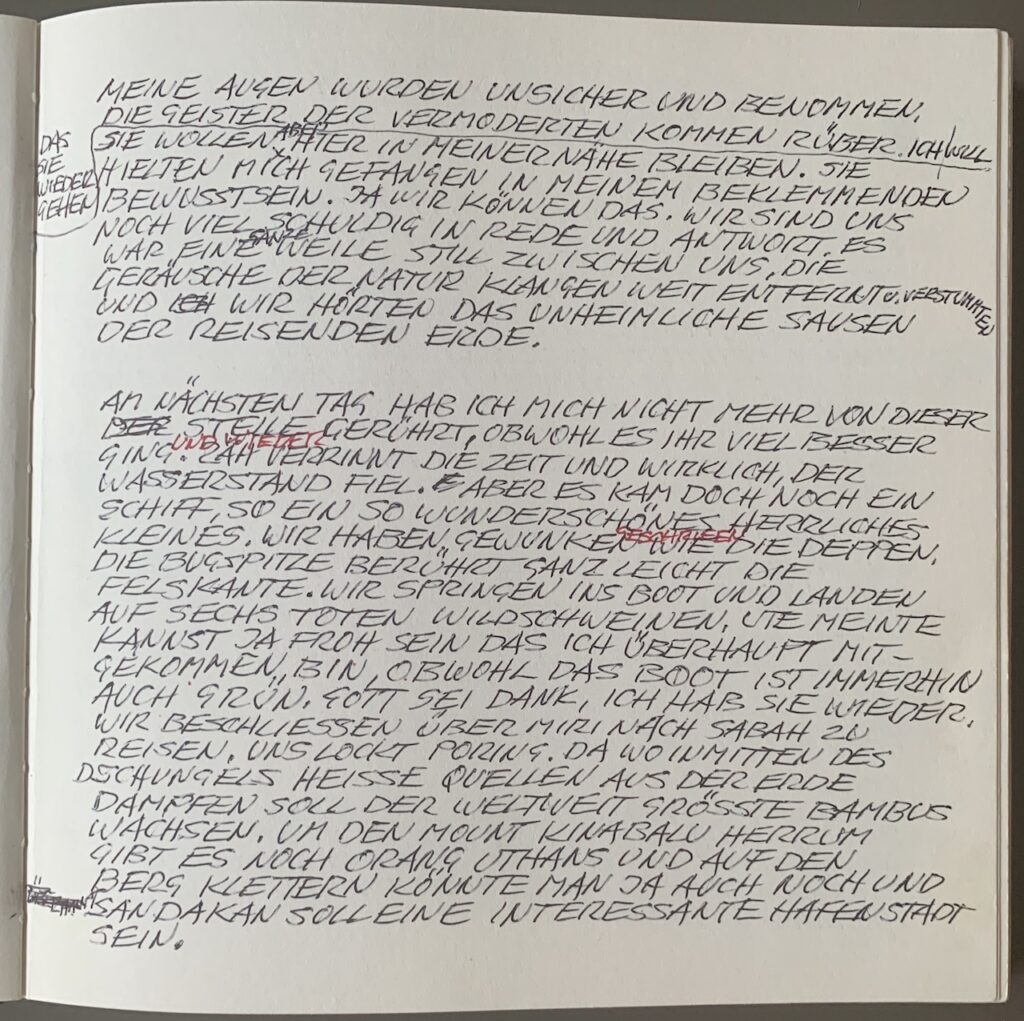 MEINE AUGEN WURDEN UNSICHER UND BENOMMEN.
DIE GEISTER DER VERMODERTEN KOMMEN RÜBER. ICH WILL
DAS
SIE
WIEDER
GEHEN
SIE WOLLEN ABER HIER IN MEINER NÄHE BLEIBEN. SIE
HIELTEN MICH GEFANGEN IN MEINEM BEKLEMMENDEN
BEWUSSTSEIN. JA WIR KÖNNEN DAS. WIR SIND UNS
NOCH VIEL SCHULDIG IN REDE UND ANTWORT. ES
WAR EINE GANZE WEILE STILL ZWISCHEN UNS, DIE
GERÄUSCHE DER NATUR KLANGEN WEIT ENTFERNT U. VERSTUMMTEN
UND ICH WIR HÖRTEN DAS UNHEIMLICHE SAUSEN
DER REISENDEN ERDE.
AM NÄCHSTEN TAG HAB ICH MICH NICHT MEHR VON DIESER
DER STELLE GERÜHRT, OBWOHL ES IHR VIEL BESSER
GING. UND WIEDER ZÄH VERRINNT DIE ZEIT UND WIRKLICH, DER
WASSERSTAND FIEL. ABER ES KAM DOCH NOCH EIN
SCHIFF, SO EIN SO WUNDERSCHÖNES HERRLICHES
KLEINES. WIR HABEN GEWUNKEN GESCHRIEEN WIE DIE DEPPEN.
DIE BUGSPITZE BERÜHRT GANZ LEICHT DIE
FELSKANTE. WIR SPRINGEN INS BOOT UND LANDEN
AUF SECHS TOTEN WILDSCHWEINEN. UTE MEINTE
KANNST JA FROH SEIN DAS ICH ÜBERHAUPT MIT-
GEKOMMEN BIN, OBWOHL DAS BOOT IST IMMERHIN
AUCH GRÜN. GOTT SEI DANK, ICH HAB SIE WIEDER.
WIR BESCHLIESSEN ÜBER MIRI NACH SABAH ZU
REISEN. UNS LOCKT PORING. DA WO INMITTEN DES
DSCHUNGELS HEISSE QUELLEN AUS DER ERDE
DAMPFEN SOLL DER WELTWEIT GRÖSSTE BAMBUS
WACHSEN. UM DEN MOUNT KINABALU HERRUM
GIBT ES NOCH ORANG UTHANS UND AUF DEN
BERG KLETTERN KÖNNTE MAN JA AUCH NOCH UND
SANDAKAN SOLL EINE INTERESSANTE HAFENSTADT
SEIN.